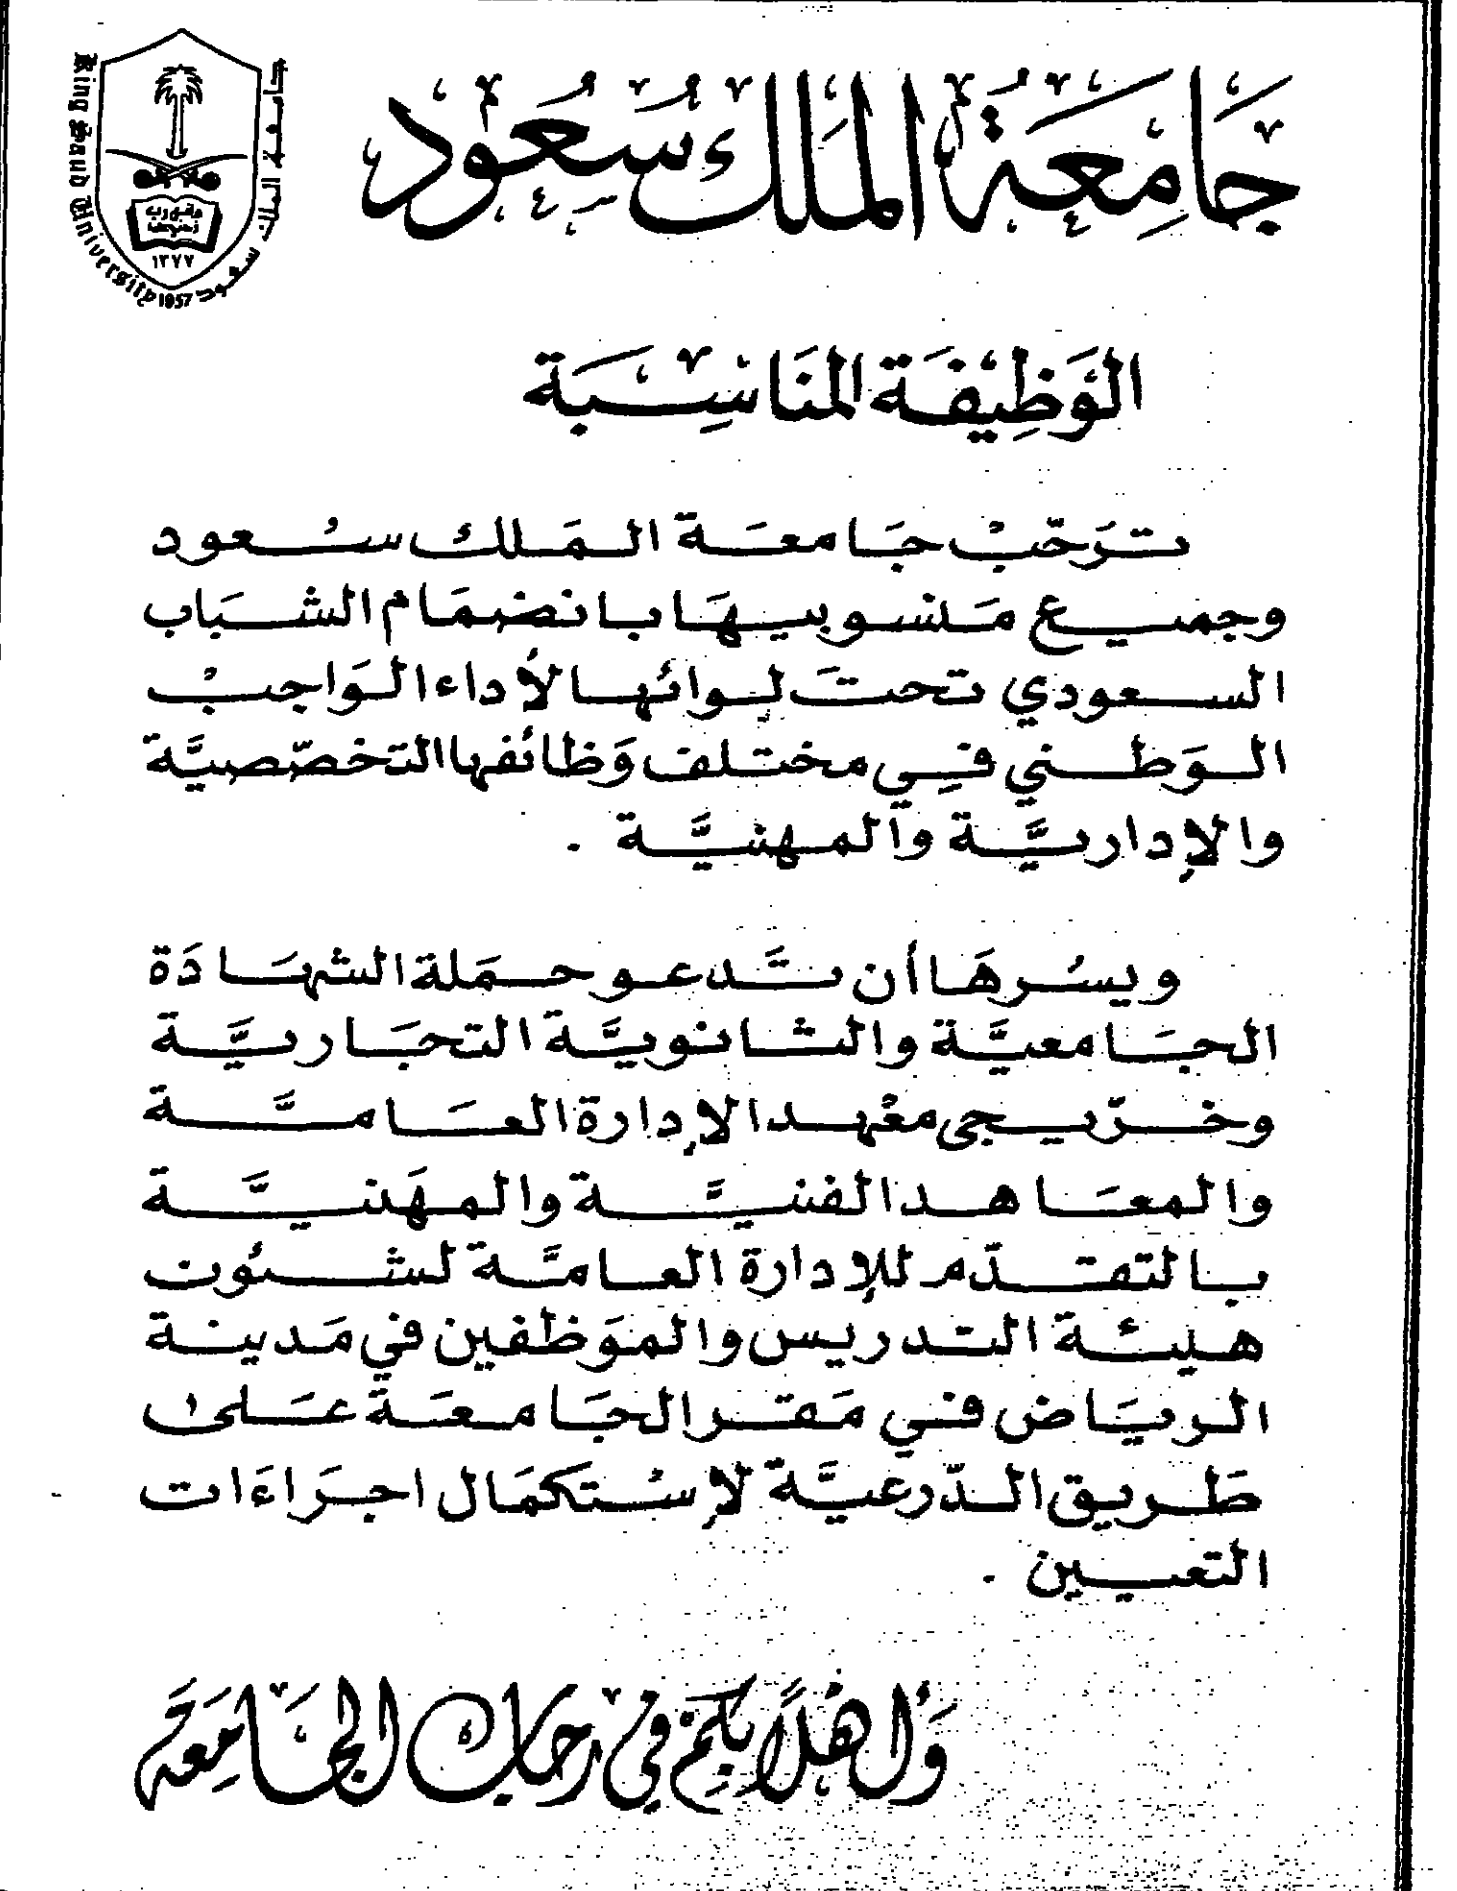 جامعة الملك سعود
King Saud University 1957
جامعة الملك سعود
١٣٧٧
الوَظِيْفَة المنَاسِبَة
ترَحّبْ جَامعَة المَلك سُعود
وجميع مَنسوبيهَا بانضمَام الشبَاب
السعودي تحتَ لوائها لأداء الوَاجبْ
الوَطني فِي مختلف وَظائفها التخصّصيَّة
والإداريَّة والمهنيَّة .
ويسُرهَا أن تَّدعو حمَلة الشهَادَة
الجَامعيَّة والثانويَّة التجَاريَّة
وخرّيجي معْهد الإدارة العَامَّة
والمعَاهد الفنيَّة والمهَنيَّة
بالتقدّم للإدارة العامَّة لشئوُن
هيئة التدريس والموَظفين في مَدينة
الريَاض في مَقر الجَامعَة عَلى
طَريق الدّرعيَّة لإستكمَال اجرَاءَات
التعيين .
وَأهْلاً بكم في رحاب الجَامعَة